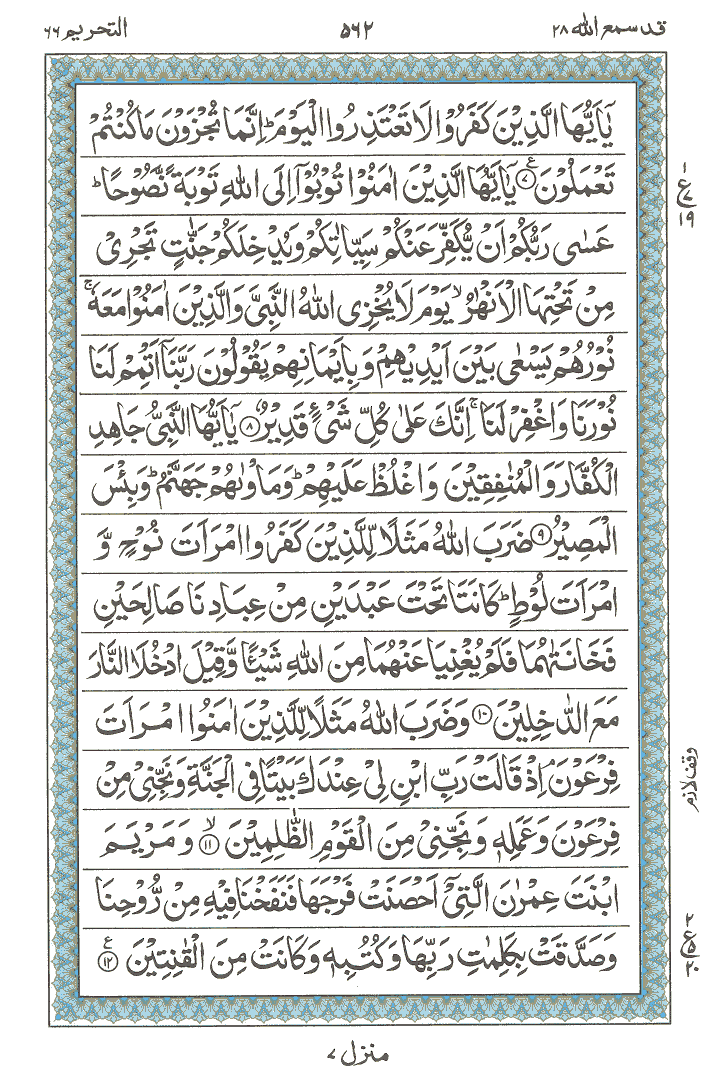 قد سمع الله ۲۸
۵۶۲
التحریم ۶۶
یٰۤاَیُّهَا الَّذِیْنَ كَفَرُوْا لَا تَعْتَذِرُوا الْیَوْمَ ؕ اِنَّمَا تُجْزَوْنَ مَا كُنْتُمْ
تَعْمَلُوْنَ ۷ۧ یٰۤاَیُّهَا الَّذِیْنَ اٰمَنُوْا تُوْبُوْۤا اِلَى اللّٰهِ تَوْبَةً نَّصُوْحًا ؕ
عَسٰى رَبُّكُمْ اَنْ یُّكَفِّرَ عَنْكُمْ سَیِّاٰتِكُمْ وَیُدْخِلَكُمْ جَنّٰتٍ تَجْرِیْ
مِنْ تَحْتِهَا الْاَنْهٰرُ ۙ یَوْمَ لَا یُخْزِی اللّٰهُ النَّبِیَّ وَالَّذِیْنَ اٰمَنُوْا مَعَهٗ ۚ
نُوْرُهُمْ یَسْعٰى بَیْنَ اَیْدِیْهِمْ وَبِاَیْمَانِهِمْ یَقُوْلُوْنَ رَبَّنَاۤ اَتْمِمْ لَنَا
نُوْرَنَا وَاغْفِرْ لَنَا ۚ اِنَّكَ عَلٰى كُلِّ شَیْءٍ قَدِیْرٌ ۸ یٰۤاَیُّهَا النَّبِیُّ جَاهِدِ
الْكُفَّارَ وَالْمُنٰفِقِیْنَ وَاغْلُظْ عَلَیْهِمْ ؕ وَمَاْوٰىهُمْ جَهَنَّمُ ؕ وَبِئْسَ
الْمَصِیْرُ ۹ ضَرَبَ اللّٰهُ مَثَلًا لِّلَّذِیْنَ كَفَرُوا امْرَاَتَ نُوْحٍ وَّ
امْرَاَتَ لُوْطٍ ؕ كَانَتَا تَحْتَ عَبْدَیْنِ مِنْ عِبَادِنَا صَالِحَیْنِ
فَخَانَتٰهُمَا فَلَمْ یُغْنِیَا عَنْهُمَا مِنَ اللّٰهِ شَیْـًٔا وَّقِیْلَ ادْخُلَا النَّارَ
مَعَ الدّٰخِلِیْنَ ۱۰ وَضَرَبَ اللّٰهُ مَثَلًا لِّلَّذِیْنَ اٰمَنُوا امْرَاَتَ
فِرْعَوْنَ ۘ اِذْ قَالَتْ رَبِّ ابْنِ لِیْ عِنْدَكَ بَیْتًا فِی الْجَنَّةِ وَنَجِّنِیْ مِنْ
فِرْعَوْنَ وَعَمَلِهٖ وَنَجِّنِیْ مِنَ الْقَوْمِ الظّٰلِمِیْنَ ۱۱ۙ وَمَرْیَمَ
ابْنَتَ عِمْرٰنَ الَّتِیْۤ اَحْصَنَتْ فَرْجَهَا فَنَفَخْنَا فِیْهِ مِنْ رُّوْحِنَا
وَصَدَّقَتْ بِكَلِمٰتِ رَبِّهَا وَكُتُبِهٖ وَكَانَتْ مِنَ الْقٰنِتِیْنَ ۱۲ۧ
۱
ع
۷
۱۹
وقف لازم
۲
ع
۵
۲۰
منزل ۷